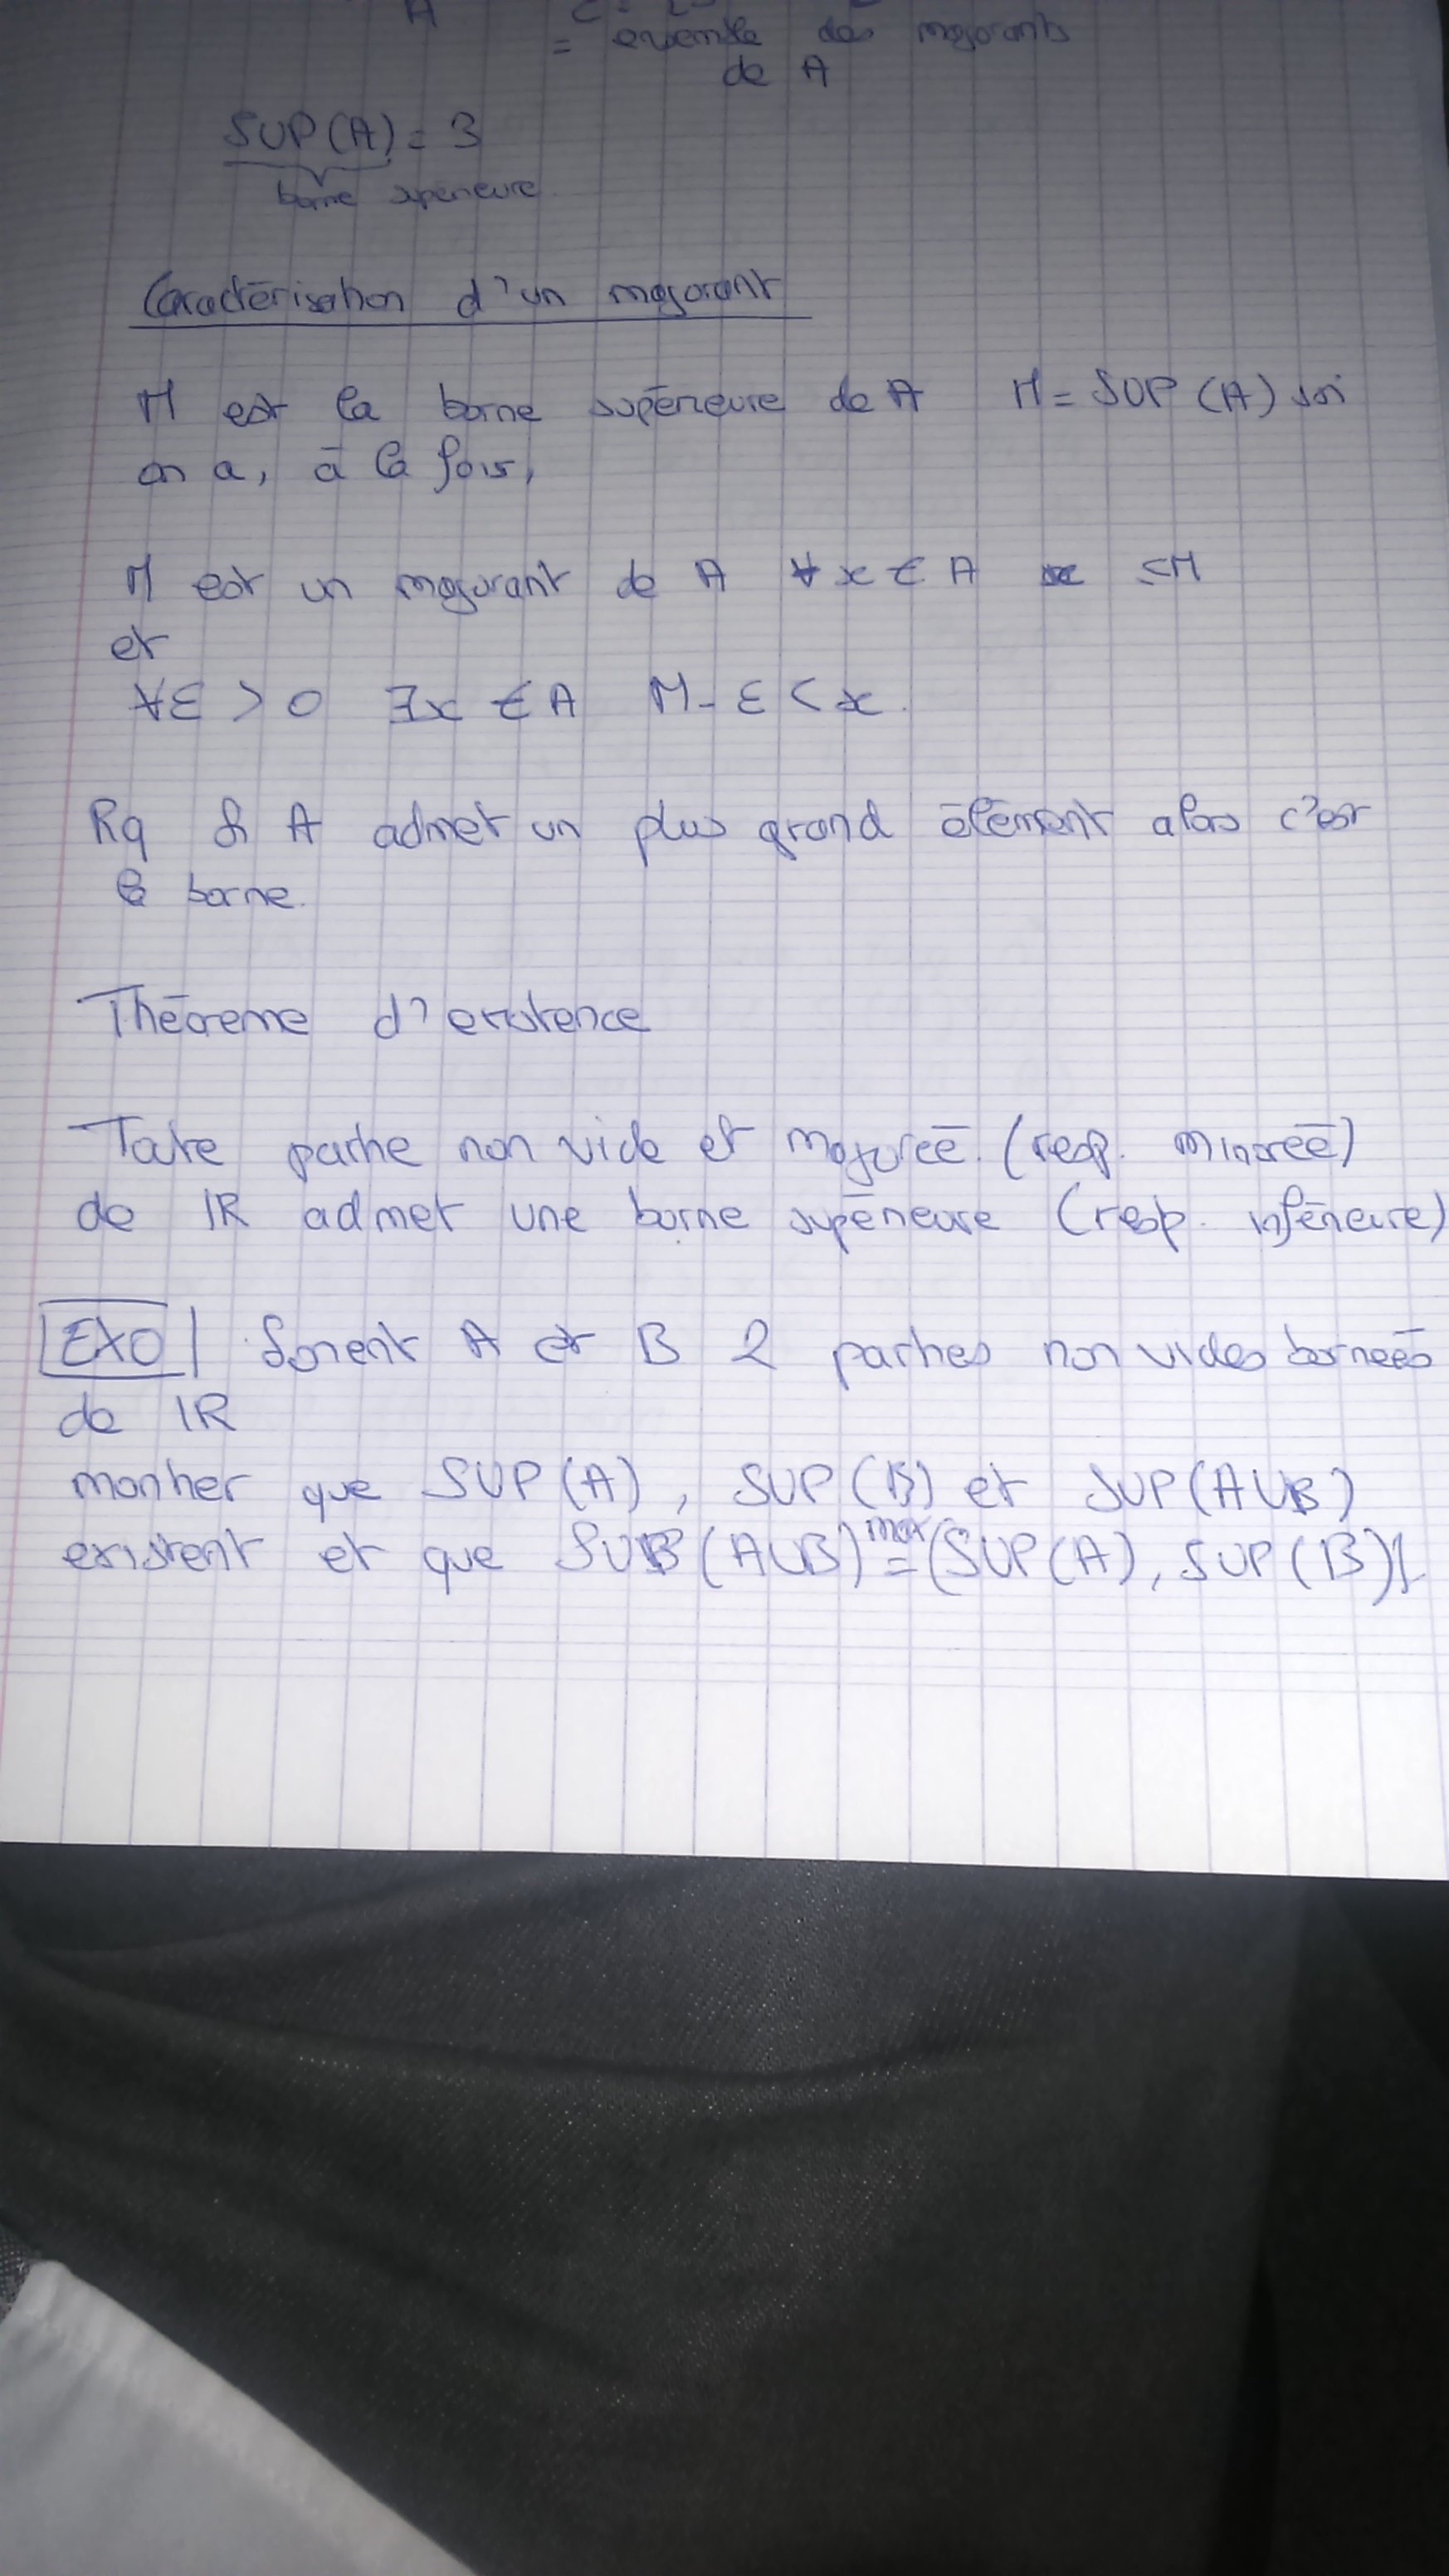 A
= ensemble des majorants
de A
SUP(A) = 3
borne supérieure
Caractérisation d'un majorant
M est la borne supérieure de A M = SUP (A) ssi
on a, à la fois,
M est un majorant de A ∀ x ∈ A x ≤ M
et
∀ε > 0 ∃x ∈ A M - ε < x.
Rq Si A admet un plus grand élément alors c'est
la borne.
Théoreme d'existence
Toute partie non vide et majorée (resp. minorée)
de IR admet une borne supérieure (resp. inférieure)
EXO Soient A et B 2 parties non vides bornées
de IR
montrer que SUP(A), SUP(B) et SUP(A∪B)
existent et que SUB(A∪B) = max(SUP(A), SUP(B))